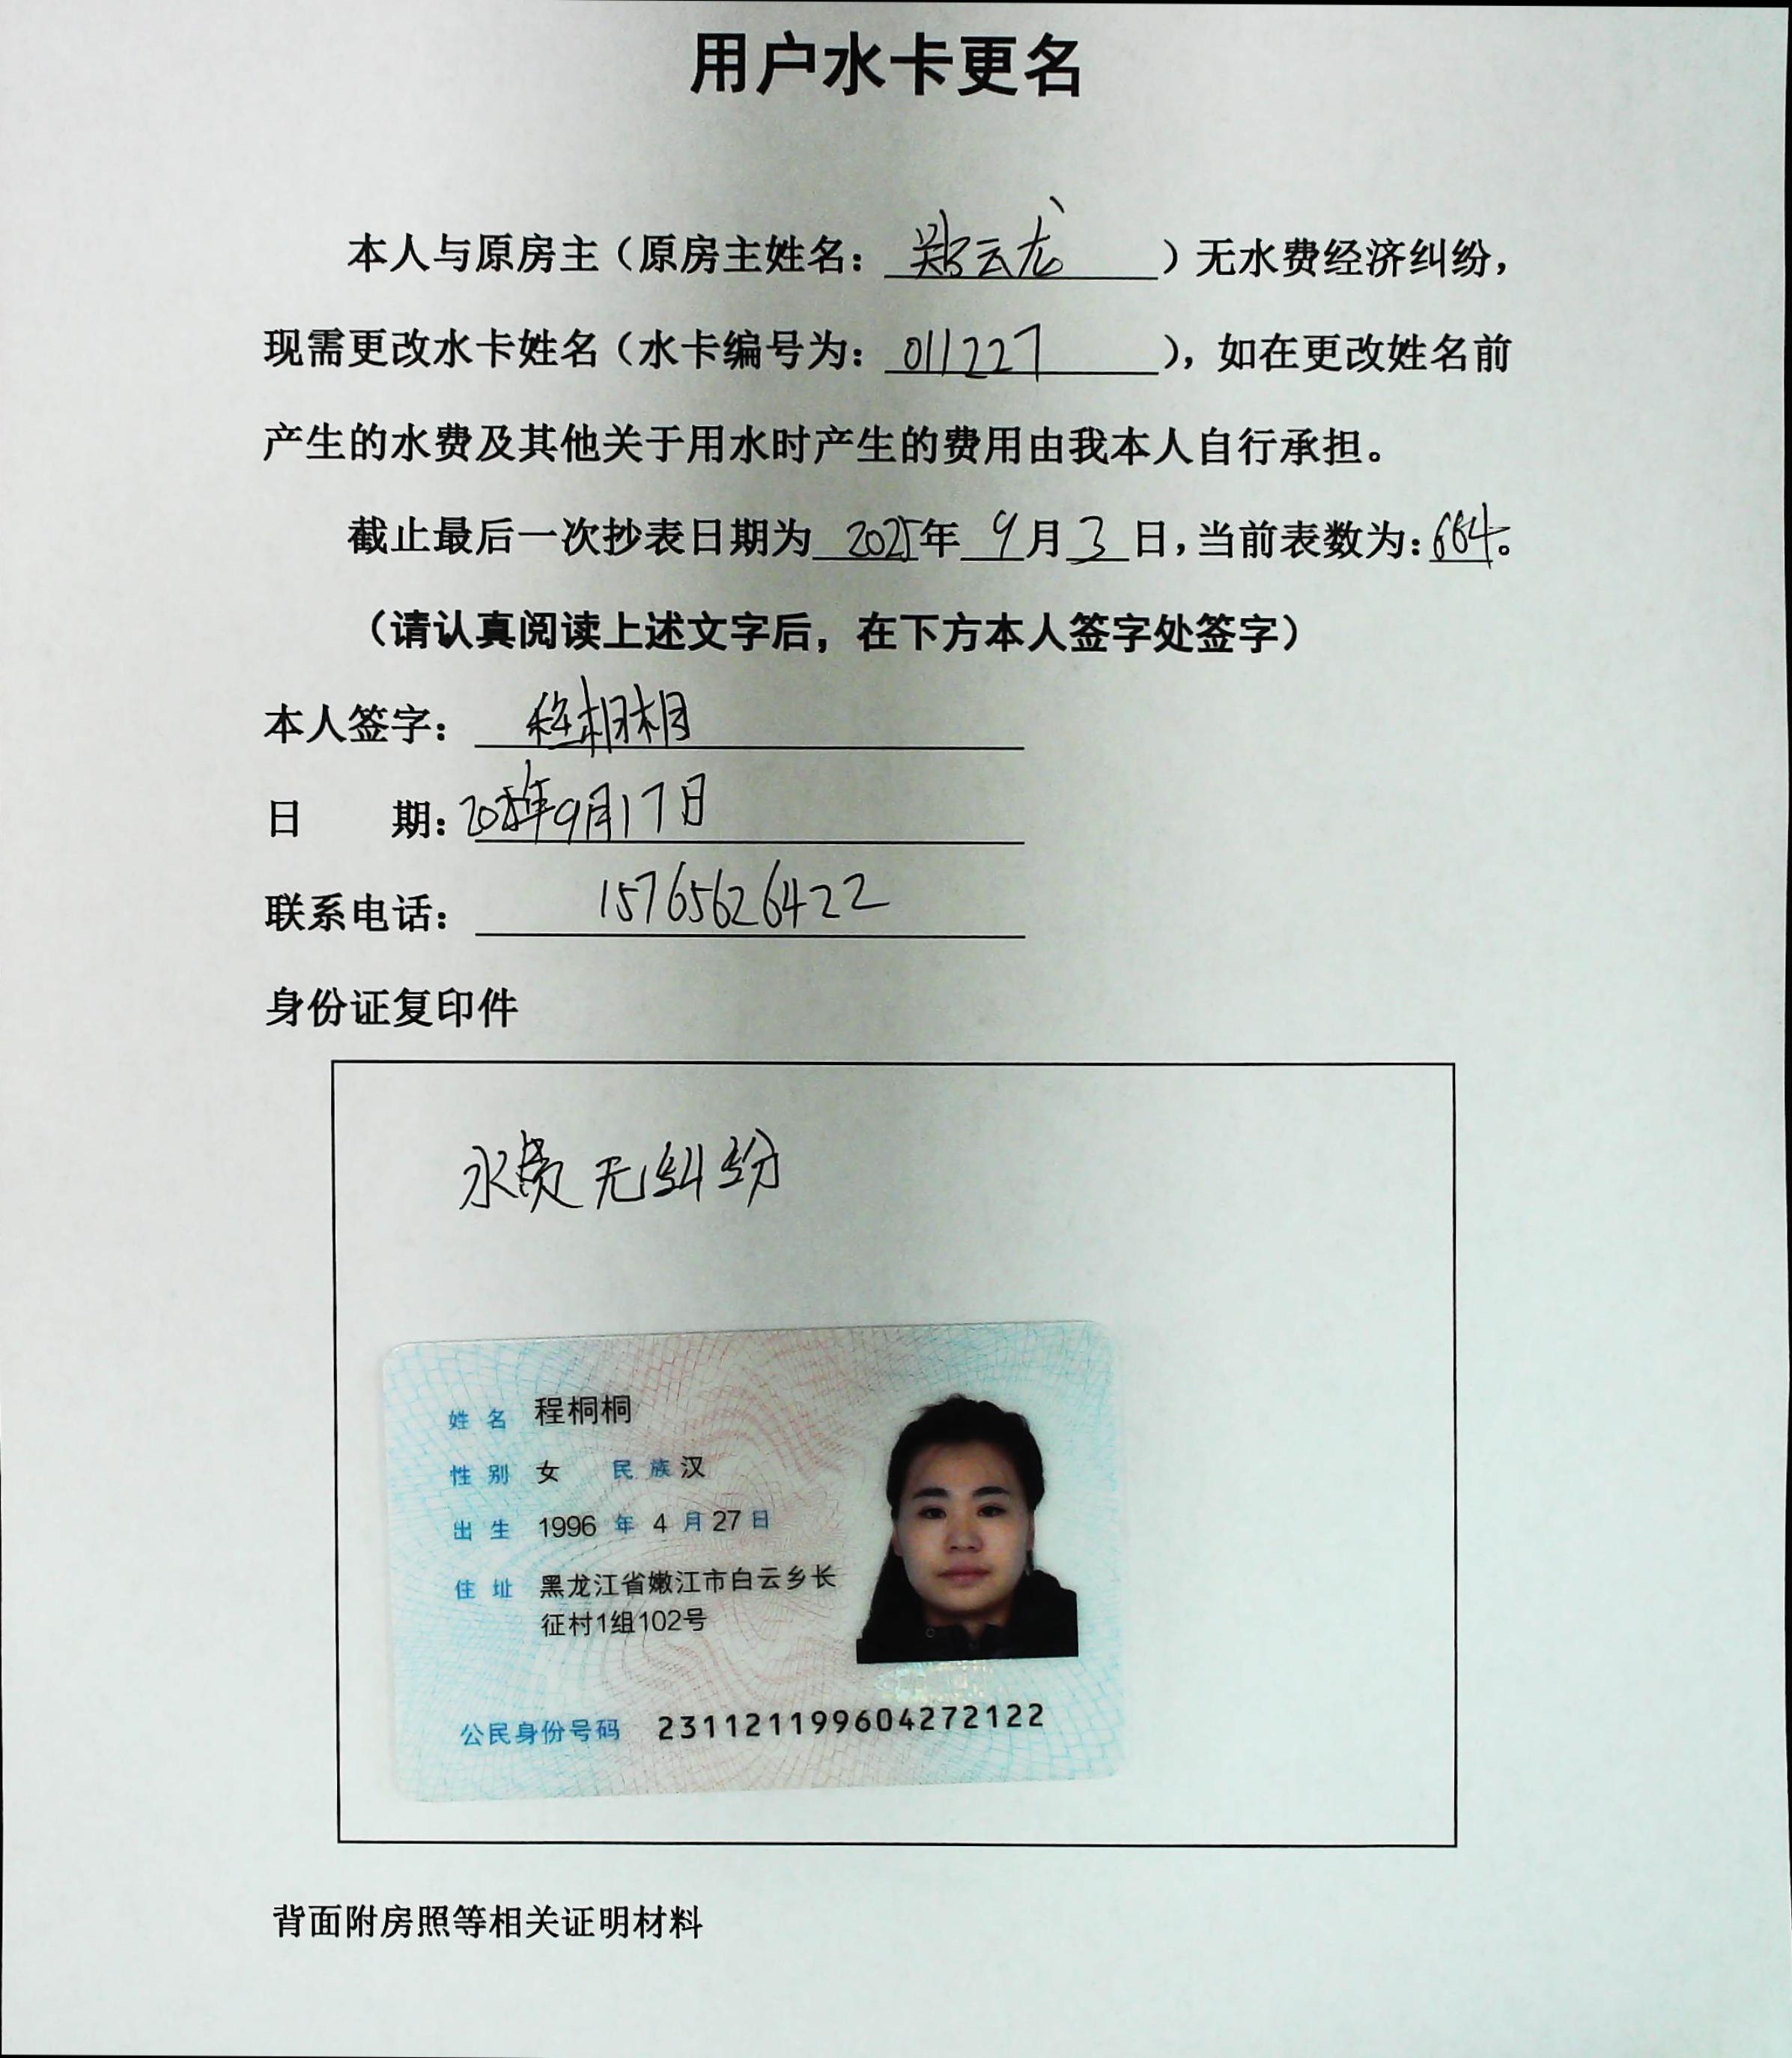 用户水卡更名
本人与原房主（原房主姓名：郑云龙）无水费经济纠纷，
现需更改水卡姓名（水卡编号为：011227），如在更改姓名前
产生的水费及其他关于用水时产生的费用由我本人自行承担。
截止最后一次抄表日期为2025年9月3日，当前表数为：664。
（请认真阅读上述文字后，在下方本人签字处签字）
本人签字：程桐桐
日 期：2025年9月17日
联系电话：15765626422
身份证复印件
水费无纠纷
姓名 程桐桐
性别 女 民族 汉
出生 1996年4月27日
住址 黑龙江省嫩江市白云乡长
征村1组102号
公民身份号码 231121199604272122
背面附房照等相关证明材料